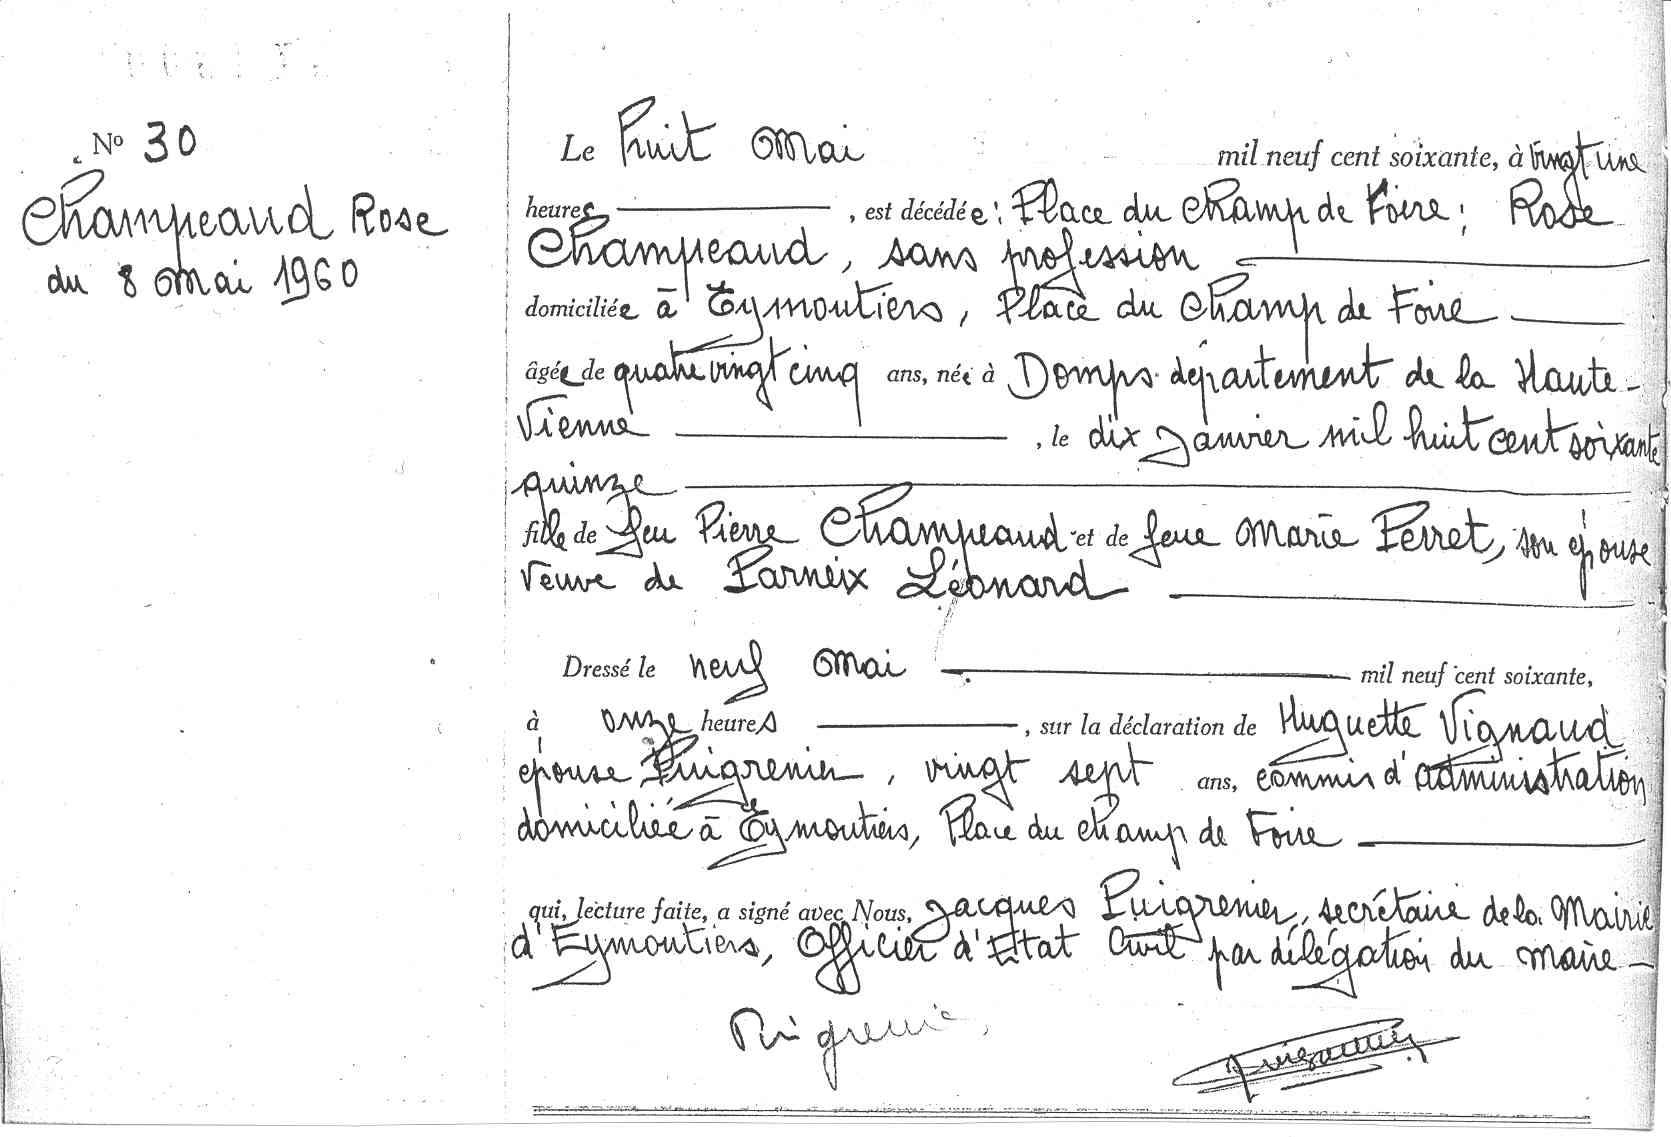 No 30
Champeaud Rose
du 8 Mai 1960
Le huit Mai mil neuf cent soixante, à vingt une
heures, est décédée : Place du Champ de Foire ; Rose
Champeaud, sans profession
domiciliée à Eymoutiers, Place du Champ de Foire
âgée de quatre vingt cinq ans, née à Domps département de la Haute-
Vienne, le dix Janvier mil huit cent soixante
quinze
fille de feu Pierre Champeaud et de feue Marie Perret, son épouse
Veuve de Parneix Léonard
Dressé le neuf Mai mil neuf cent soixante,
à onze heures, sur la déclaration de Huguette Vignaud
épouse Puigrenier, vingt sept ans, commis d'administration
domiciliée à Eymoutiers, Place du Champ de Foire
qui, lecture faite, a signé avec Nous, Jacques Puigrenier, secrétaire de la Mairie
d'Eymoutiers, Officier d'Etat Civil par délégation du Maire
Puigrenier
Puigrenier